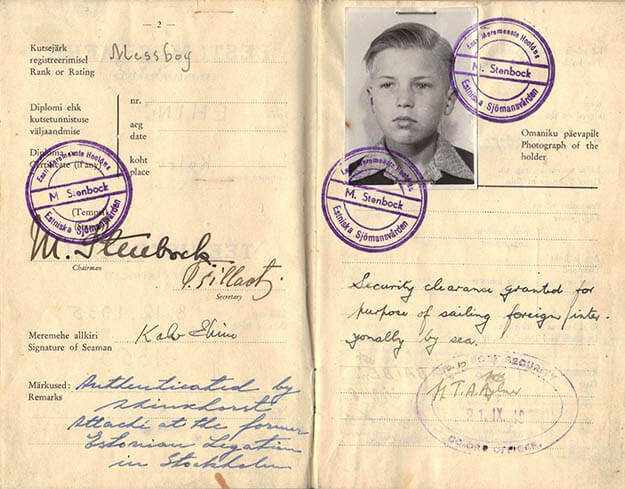 — 2 —
Kutsejärk
registreerimisel
Rank or Rating
Messboy
Diplomi ehk
kutsetunnistuse
väljaandmise
nr.
aeg
date
koht
place
Diploma
Certificate (if any)
Eesti Meremeeste Hoolekne
M. Stenbock
Estniska Sjömansvården
(Tempel)
M. Stenbock.
Chairman
Secretary
Meremehe allkiri
Signature of Seaman
Märkused:
Remarks
Authenticated by
attaché at the former
Estonian Legation
in Stockholm
Eesti Meremeeste Hoolekne
M. Stenbock
Estniska Sjömansvården
Omaniku päevapilt
Photograph of the
holder
Eesti Meremeeste Hoolekne
M. Stenbock
Estniska Sjömansvården
Security clearance granted for
purpose of sailing foreign/inter-
by sea.
PORT SECURITY
IX
OFFICER.